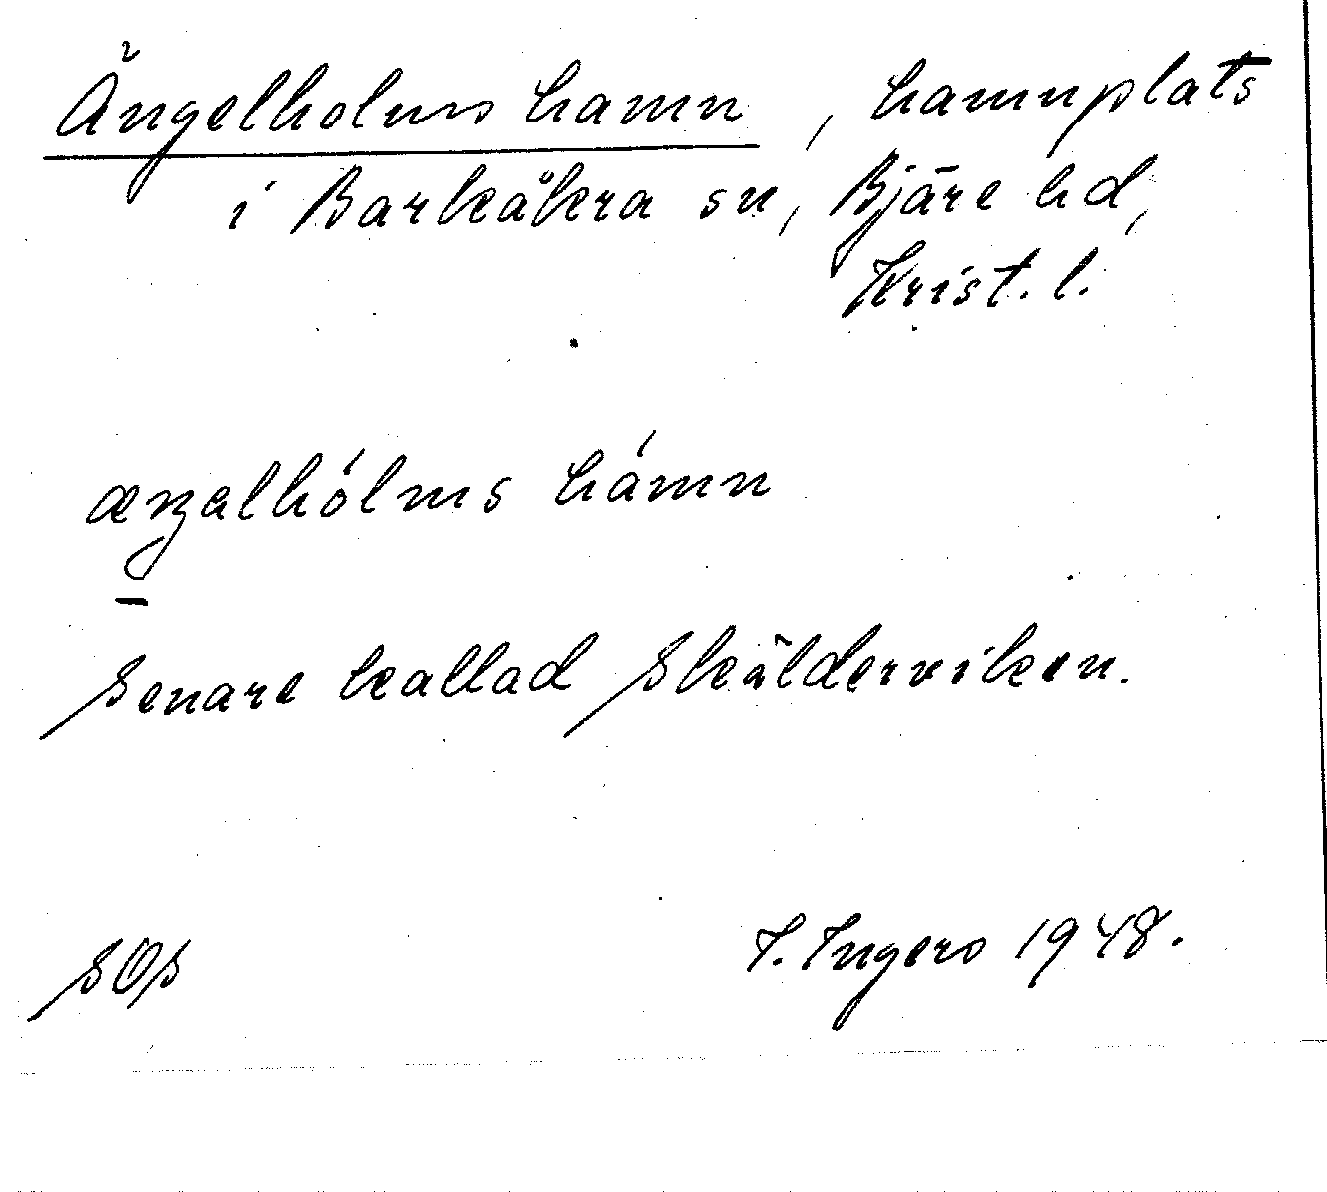 Ängelholms hamn, hamnplats
i Barkåkra sn, Bjäre hd,
Krist. l.
æŋəlhólms hámn
Senare kallad Skälderviken.
SOS
I. Ingers 1948.